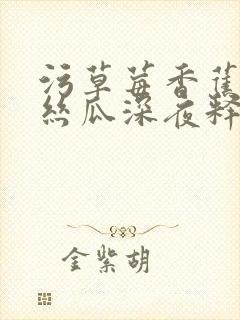 污草莓香蕉
丝瓜深夜释
金紫胡